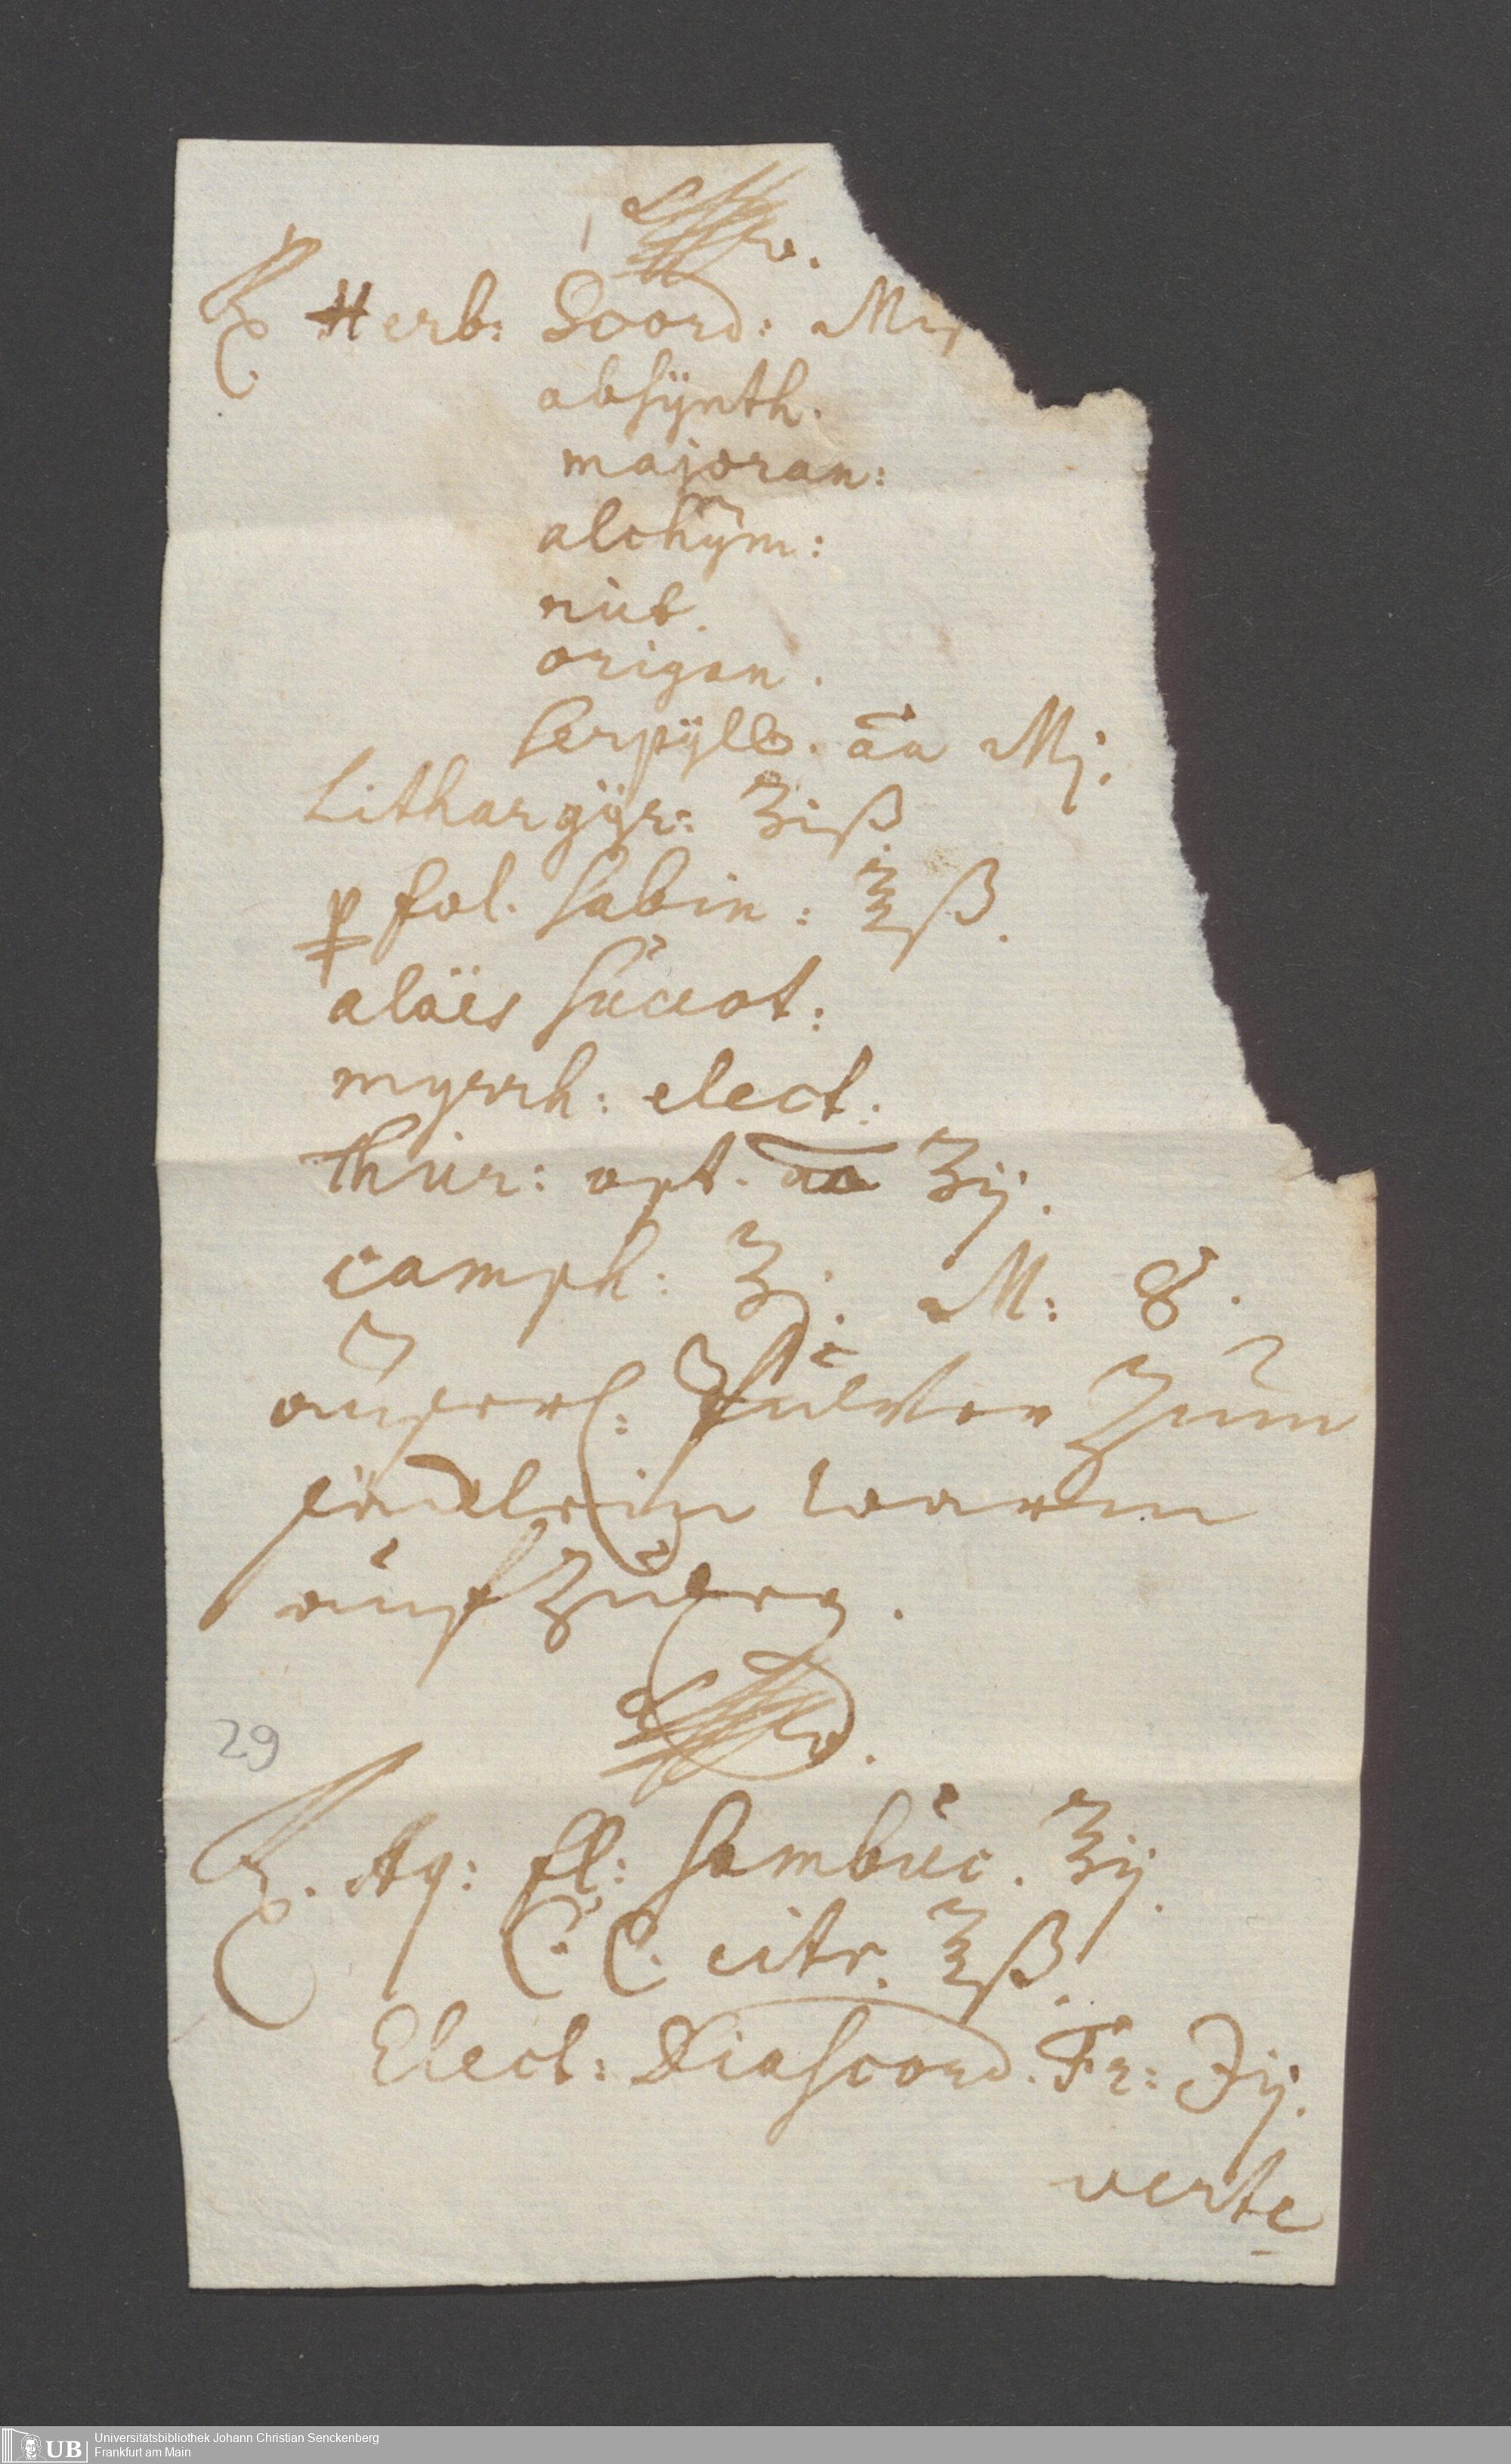 ℞ Herb: Scord: Mij
absÿnth.
majoran:
alchym:
rut.
origan.
serpÿll. āā Mj.
Lithargÿr: ʒiß
p fol. sabin: ℥ß.
aloës succot:
myrrh: elect.
thur: opt. āā ʒij.
camph: ʒj. M: S.
äuserl. Pulver zum
säcklein warm
aufzuleg.
29
℞. Aq: fl: sambuc. ʒij.
C. C. citr. ℥ß.
Elect: Diascord. Fr: ℈ij.
verte
UB
Universitätsbibliothek Johann Christian Senckenberg
Frankfurt am Main